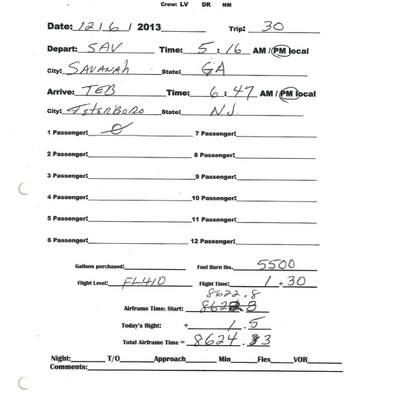 Crew: LV DR NM
Date: 12 / 6 / 2013 Trip: 30
Depart: SAV Time: 5 : 16 AM / PM local
City: SAVANAH State: GA
Arrive: TEB Time: 6 : 47 AM / PM local
City: TETERBORO State: NJ
1 Passenger: 0 7 Passenger:
2 Passenger: 8 Passenger:
3 Passenger: 9 Passenger:
4 Passenger: 10 Passenger:
5 Passenger: 11 Passenger:
6 Passenger: 12 Passenger:
Gallons purchased: Fuel Burn lbs. 5500
Flight Level: FL410 Flight Time: 1 + 30
8622.8
Airframe Time: Start: 8622.8
Today's flight: + 1.5
Total Airframe Time = 8624.3
Night: T/O Approach Min Flex VOR
Comments: